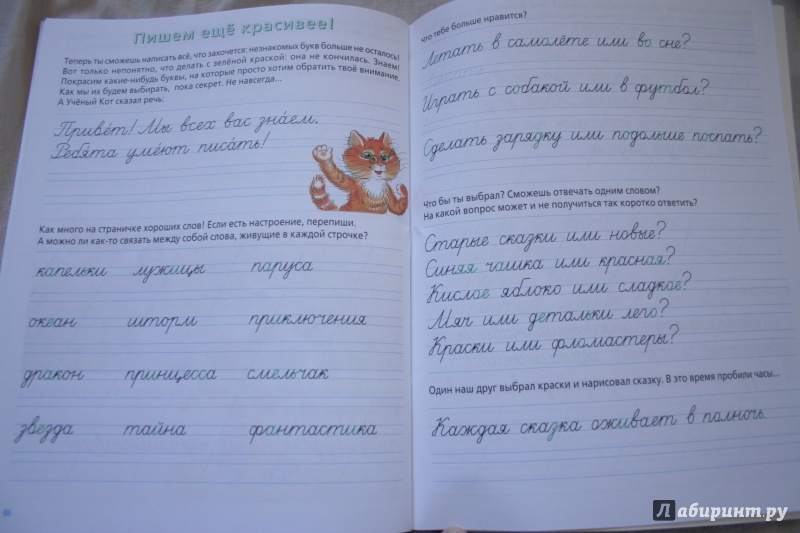 Пишем ещё красивее!
Теперь ты сможешь написать всё, что захочется: незнакомых букв больше не осталось!
Вот только непонятно, что делать с зелёной краской: она не кончилась. Знаем!
Покрасим какие-нибудь буквы, на которые просто хотим обратить твоё внимание.
Как мы их будем выбирать, пока секрет. Не навсегда...
А Учёный Кот сказал речь:
Приве́т! Мы всех вас зна́ем.
Ребя́та уме́ют писа́ть!
Как много на страничке хороших слов! Если есть настроение, перепиши.
А можно ли как-то связать между собой слова, живущие в каждой строчке?
капельки лужицы паруса
океан шторм приключения
дракон принцесса смельчак
звезда тайна фантастика
Что тебе больше нравится?
Летать в самолёте или во сне?
Играть с собакой или в футбол?
Сделать зарядку или подольше поспать?
Что бы ты выбрал? Сможешь отвечать одним словом?
На какой вопрос может и не получиться так коротко ответить?
Старые сказки или новые?
Синяя чашка или красная?
Кислое яблоко или сладкое?
Мяч или детальки лего?
Краски или фломастеры?
Один наш друг выбрал краски и нарисовал сказку. В это время пробили часы...
Каждая сказка оживает в полночь.
Лабиринт.ру